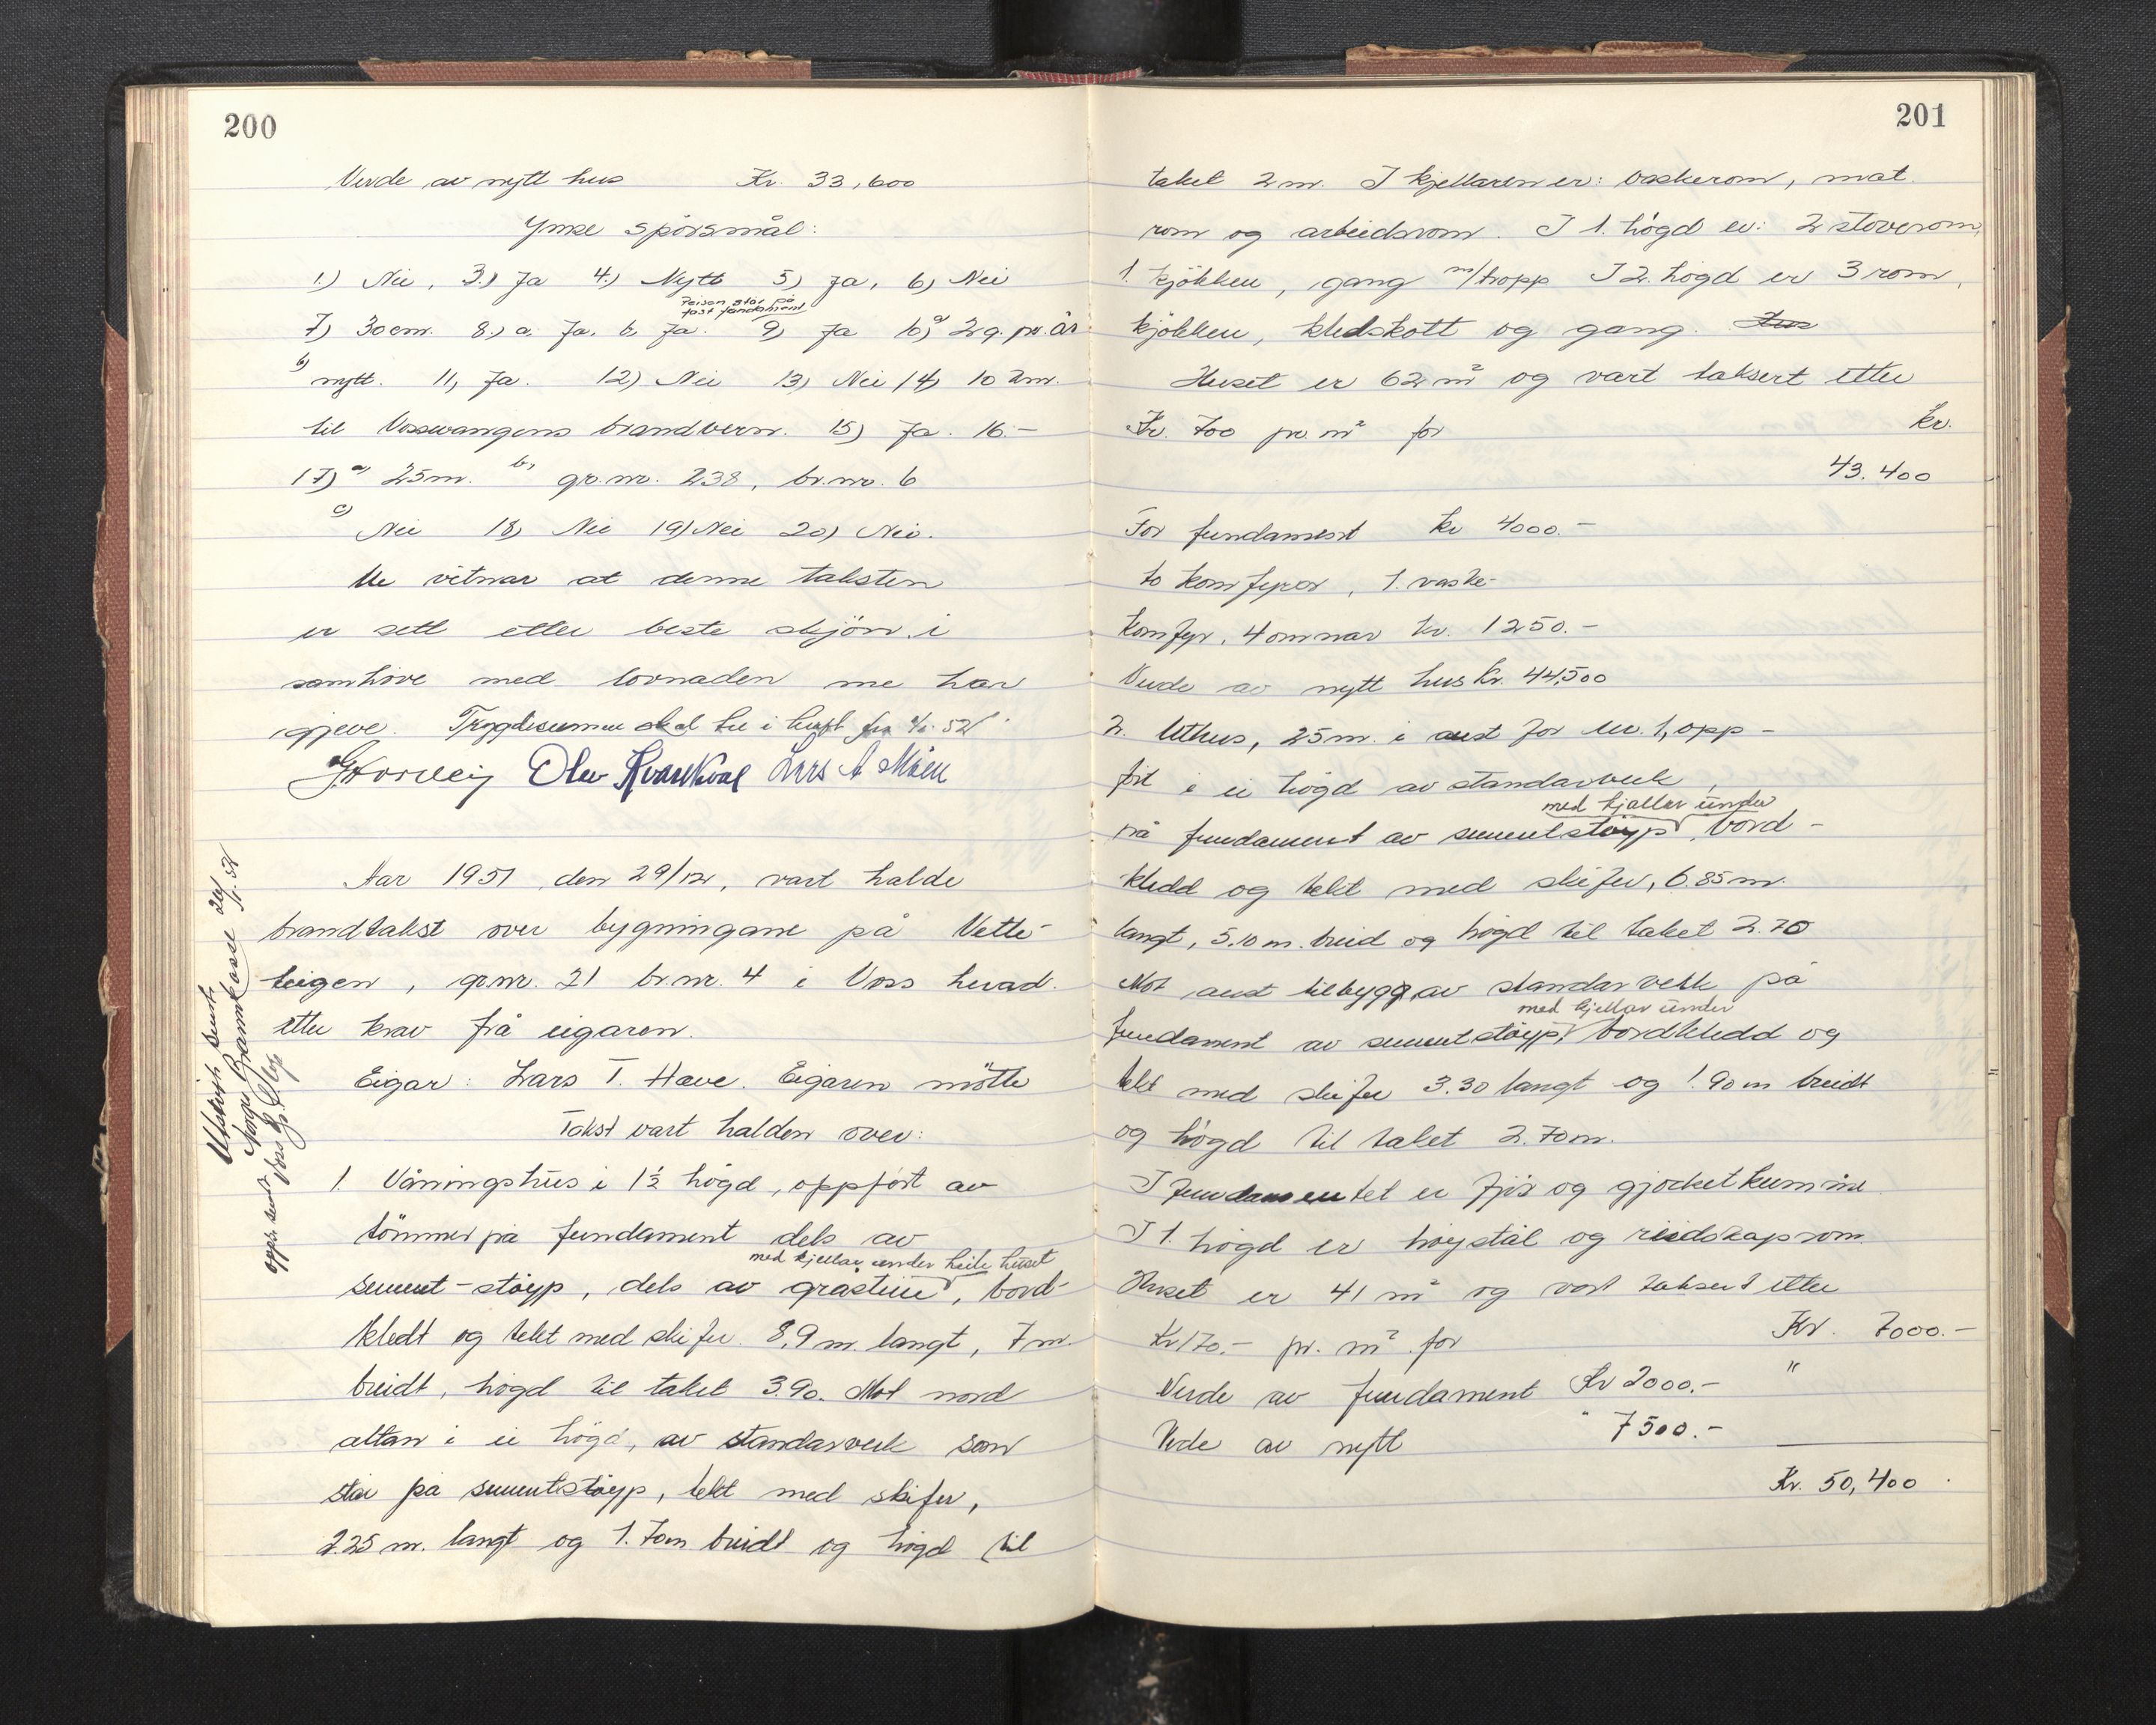 200
Verde av nytt hus Kr. 33,600
Ymse spörsmål:
1.) Nei, 3.) Ja 4.) Nytt 5) Ja, 6) Nei
Peisen står på
fast fundament
7) 30cm. 8.) a. Ja, b, Ja. 9) Ja 10) a) 2 g. pr. år
b) nytt. 11, Ja. 12) Nei 13) Nei 14) 10 km.
til Vossevangens brandvern. 15) Ja. 16.-
17) a) 25m. b, gr.nr. 238, br.nr. 6
c) Nei 18) Nei 19) Nei 20) Nei.
Me vitnar at denne taksten
er sett etter beste skjön i
samhöve med lovnaden me har
gjeve. Trygdesummen skal til i kraft fra 1/1. 52
Lars A Möen
Aar 1951, den 29/12, vart halde
brandtakst over bygningane på Vette-
teigen, gr.nr. 21 br.nr. 4 i Voss herad.
etter krav frå eigaren.
Eigar: Lars T. Have. Eigaren mötte
Takst vart halden over:
1. Våningshus i 1½ högd, oppfört av
tömmer på fundament dels av
med kjellar under heile huset
sement-stöyp, dels av gråstein, bord-
kledt og tekt med skifer. 8,9 m. langt, 7 m.
breidt, högd til taket 3.90. Mot nord
altan i ei högd, av standarverk som
står på sementstöyp, tekt med skifer,
2.25 m. langt og 1.70m breidt og högd til
Utskrift sendt
Norges Brannkasse
201
taket 2 m. I kjellaren er: vaskerom, mat
rom og arbeidsrom. I 1. högd er: 2 stoverom,
1. kjökken, gang m/tropp I 2. högd er 3 rom,
kjökken, kledskott og gang. Hus
Huset er 62 m² og vart taksert etter
Kr. 700 pr. m² for kr.
43.400
For fundament kr 4000.-
to komfyrar, 1. vaske-
komfyr, 4 omnar kr. 1250.-
Verde av nytt hus kr. 44,500
2. Uthus, 25 m. i aust for nr. 1, opp-
fört i ei högd av standarverk,
med kjellar under
på fundament av sementstöyp, bord-
kledd og tekt med skifer, 6.85 m.
langt, 5.10 m. breid og högd til taket 2.70
Mot aust tilbygg av standarverk på
med kjellar under
fundament av sementstöyp, bordkledd og
tekt med skifer 3.30 langt og 1.90 m breidt
og högd til taket 2.70m.
I fundamentet er fjös og gjödselkum
I 1. högd er höystål og reidskapsrom.
Huset er 41 m² og vart taksert etter
Kr 170.- pr. m² for Kr. 7000.-
Verde av fundament Kr 2000.- "
Verde av nytt " 7500.-
Kr. 50,400